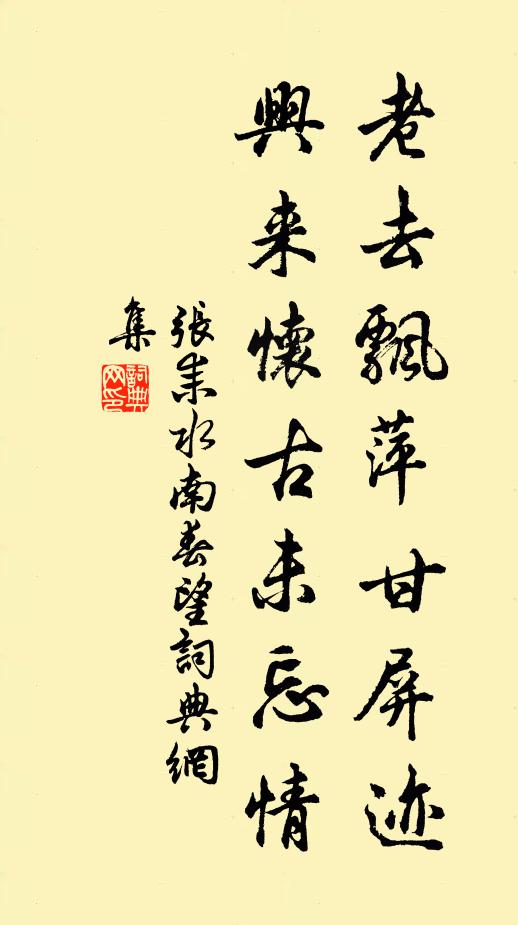 老去飄萍甘屏迹
興来懷古未忘情
張耒水南春望詞典網
集
詞典
网印